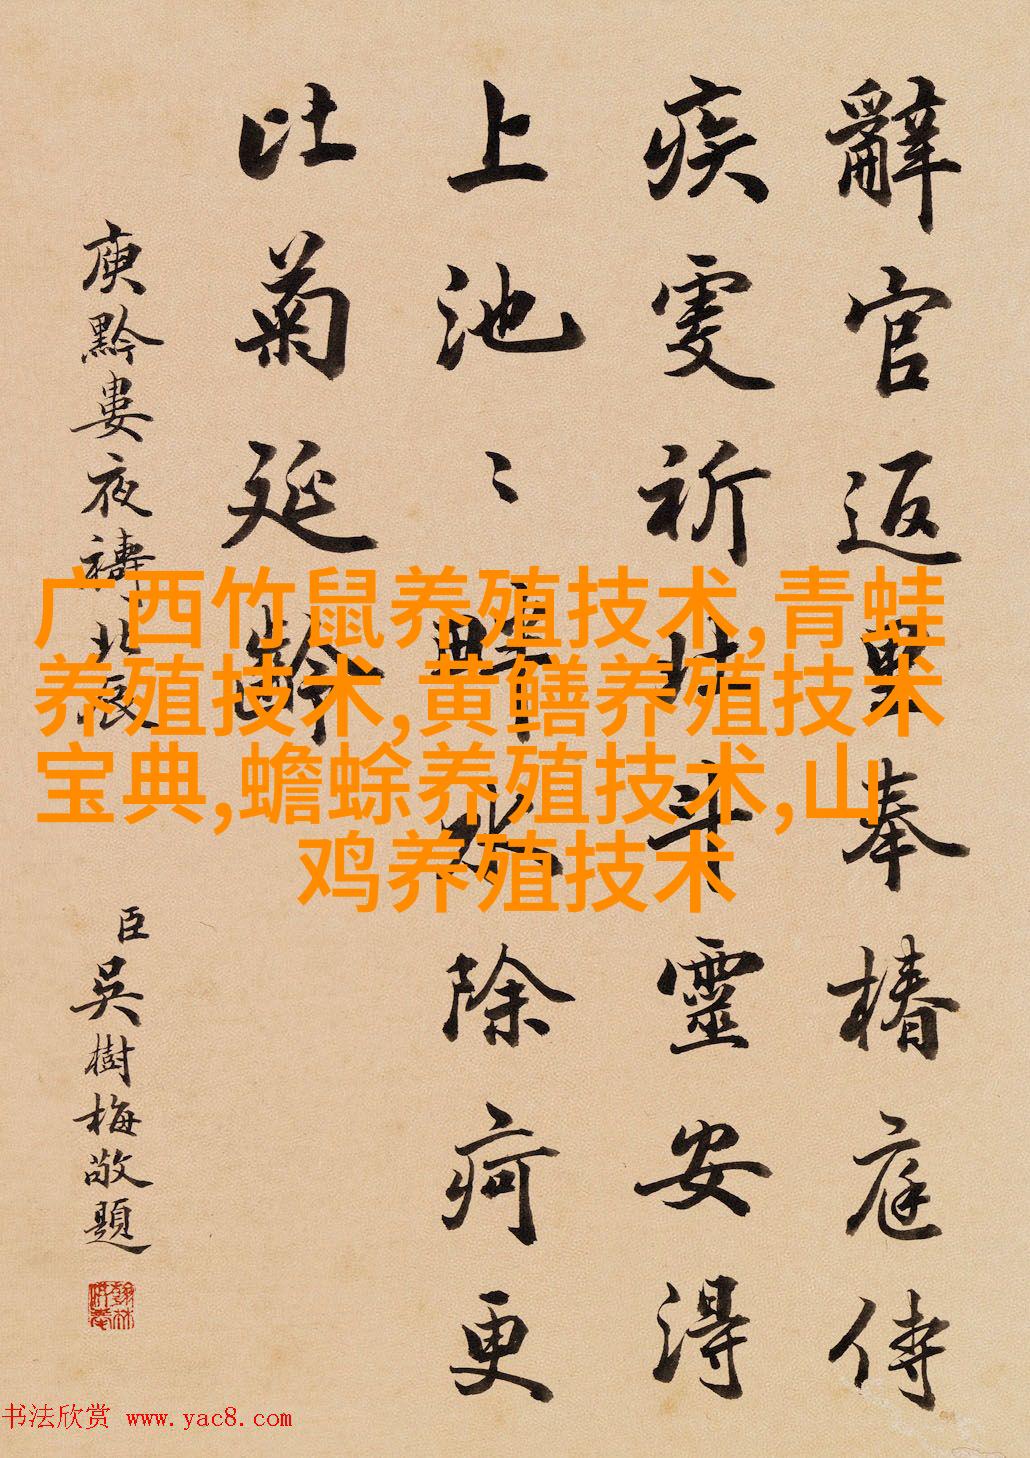 辭官返里奉椿庭侍
疾虔祈北斗靈安得
上池〻畔水除疴更
比菊延齡
庾黔婁夜禱北辰
臣吳樹梅敬題
广西竹鼠养殖技术,青蛙
养殖技术,黄鳝养殖技术
宝典,蟾蜍养殖技术,山
鸡养殖技术
书法欣赏 www.yac8.com